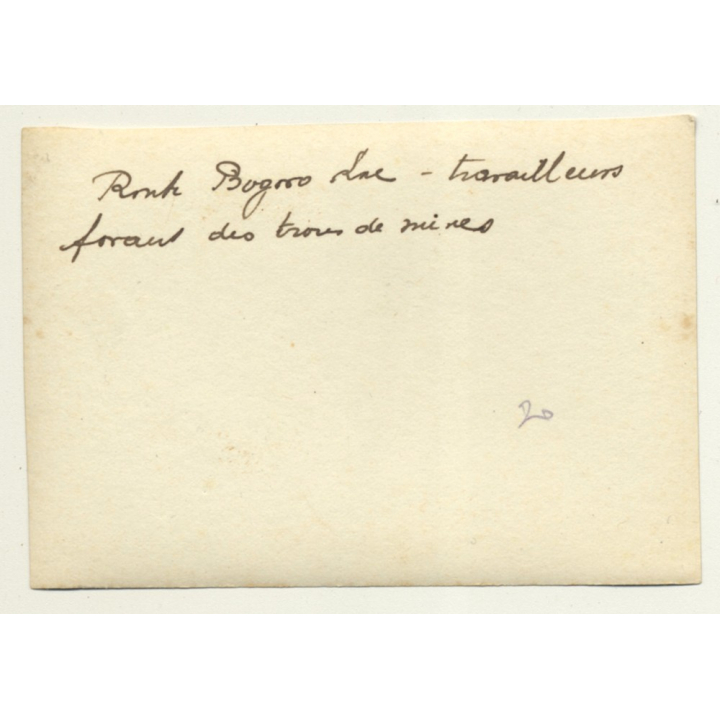 Route Bogoro Lac - travailleurs
forant des trous de mines
20